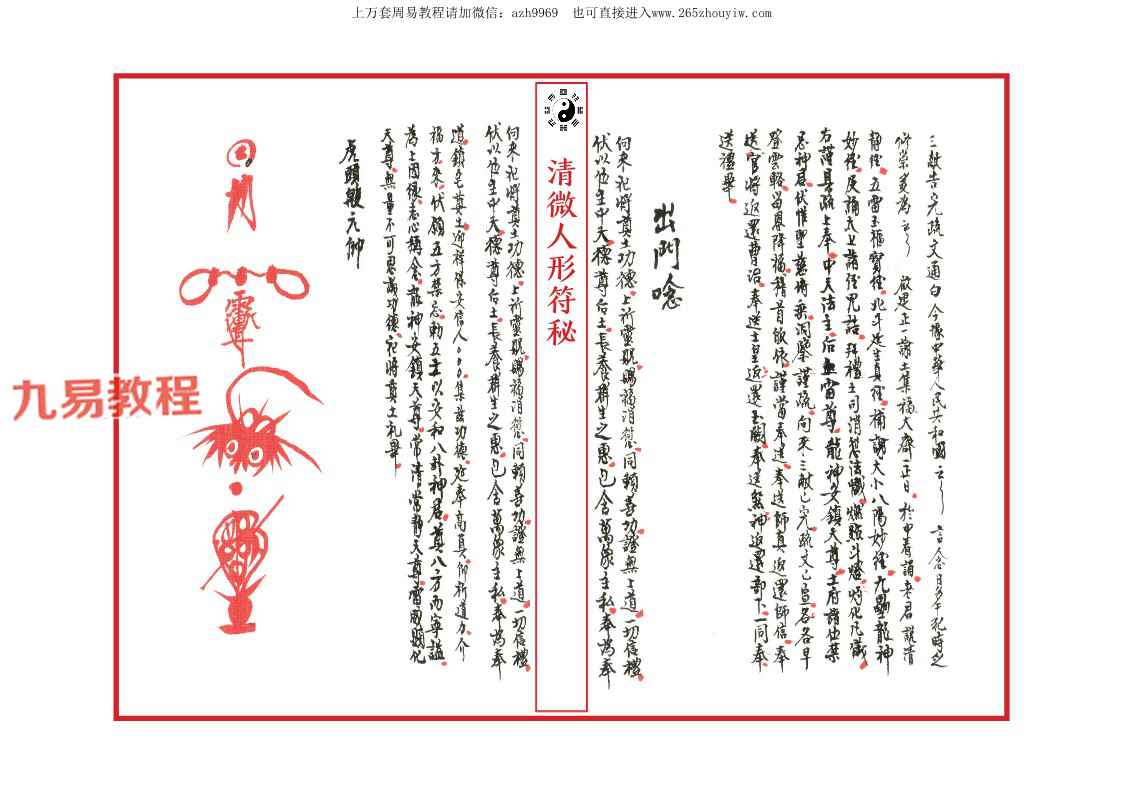 上万套周易教程请加微信：azh9969 也可直接进入www.265zhouyiw.com
三献告文完疏文通白今據中華人民共和國云云 言念月
修崇多為云云 啟建正一謝土集福大齋一正日 於中看誦老君說清
静經 五雷玉樞寶經 北斗延生真經 補謝大小八陽妙經 九壘龍神
妙經 及誦
右薄具疏上奉 中天法主 后土 尊 龍神安鎮天尊 土府諸位禁
忌神君 伏惟聖慈 洞鑒 謹疏 向來三献已完 疏文已宣 各各早
登雲輅 留恩降福 稽首皈依 謹當奉送 奉送師真返還師信 奉
送官將返還曹治 奉送土皇返還玉闕 奉送煞神返還部下 一同奉
送禮畢
出門唸
向來祀將尊土功德 上祈靈貺 賜福消愆 同賴善功 證無上道 一切信禮
伏以位主中天 德尊后土 長養群生之惠 包含萬象 主私奉為奉
清微人形符秘
向來祀將尊土功德 上祈靈貺 賜福消愆 同賴善功 證無上道 一切信禮
伏以位主中天 德尊后土 長養群生之惠 包含萬象 主私奉為奉
道鎮宅尊土迎祥 安信人 集茲功德 延奉高真 仰祈道力 介
福方來 伏願五方禁忌 勅五土以安和 八卦神君 尊八方而寧謐
為上因緣 志心稱念 龍神安鎮天尊 常清常靜天尊 雷 顯化
天尊 無量不可思議功德 祀將尊土礼畢
虎頭殷元帥
九易教程